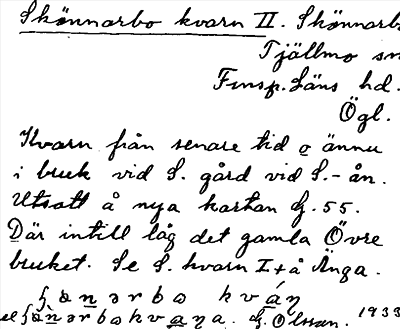 Skönnarbo kvarn II. Skönnarb
Tjällmo sn
Finsp. Läns hd.
Ögl.
Kvarn från senare tid o ännu
i bruk vid S. gård vid S.-ån.
Utsatt å nya kartan G. 55.
Där intill låg det gamla Övre
bruket. Se S. kvarn I + å Änga.
G. Olsson. 1933